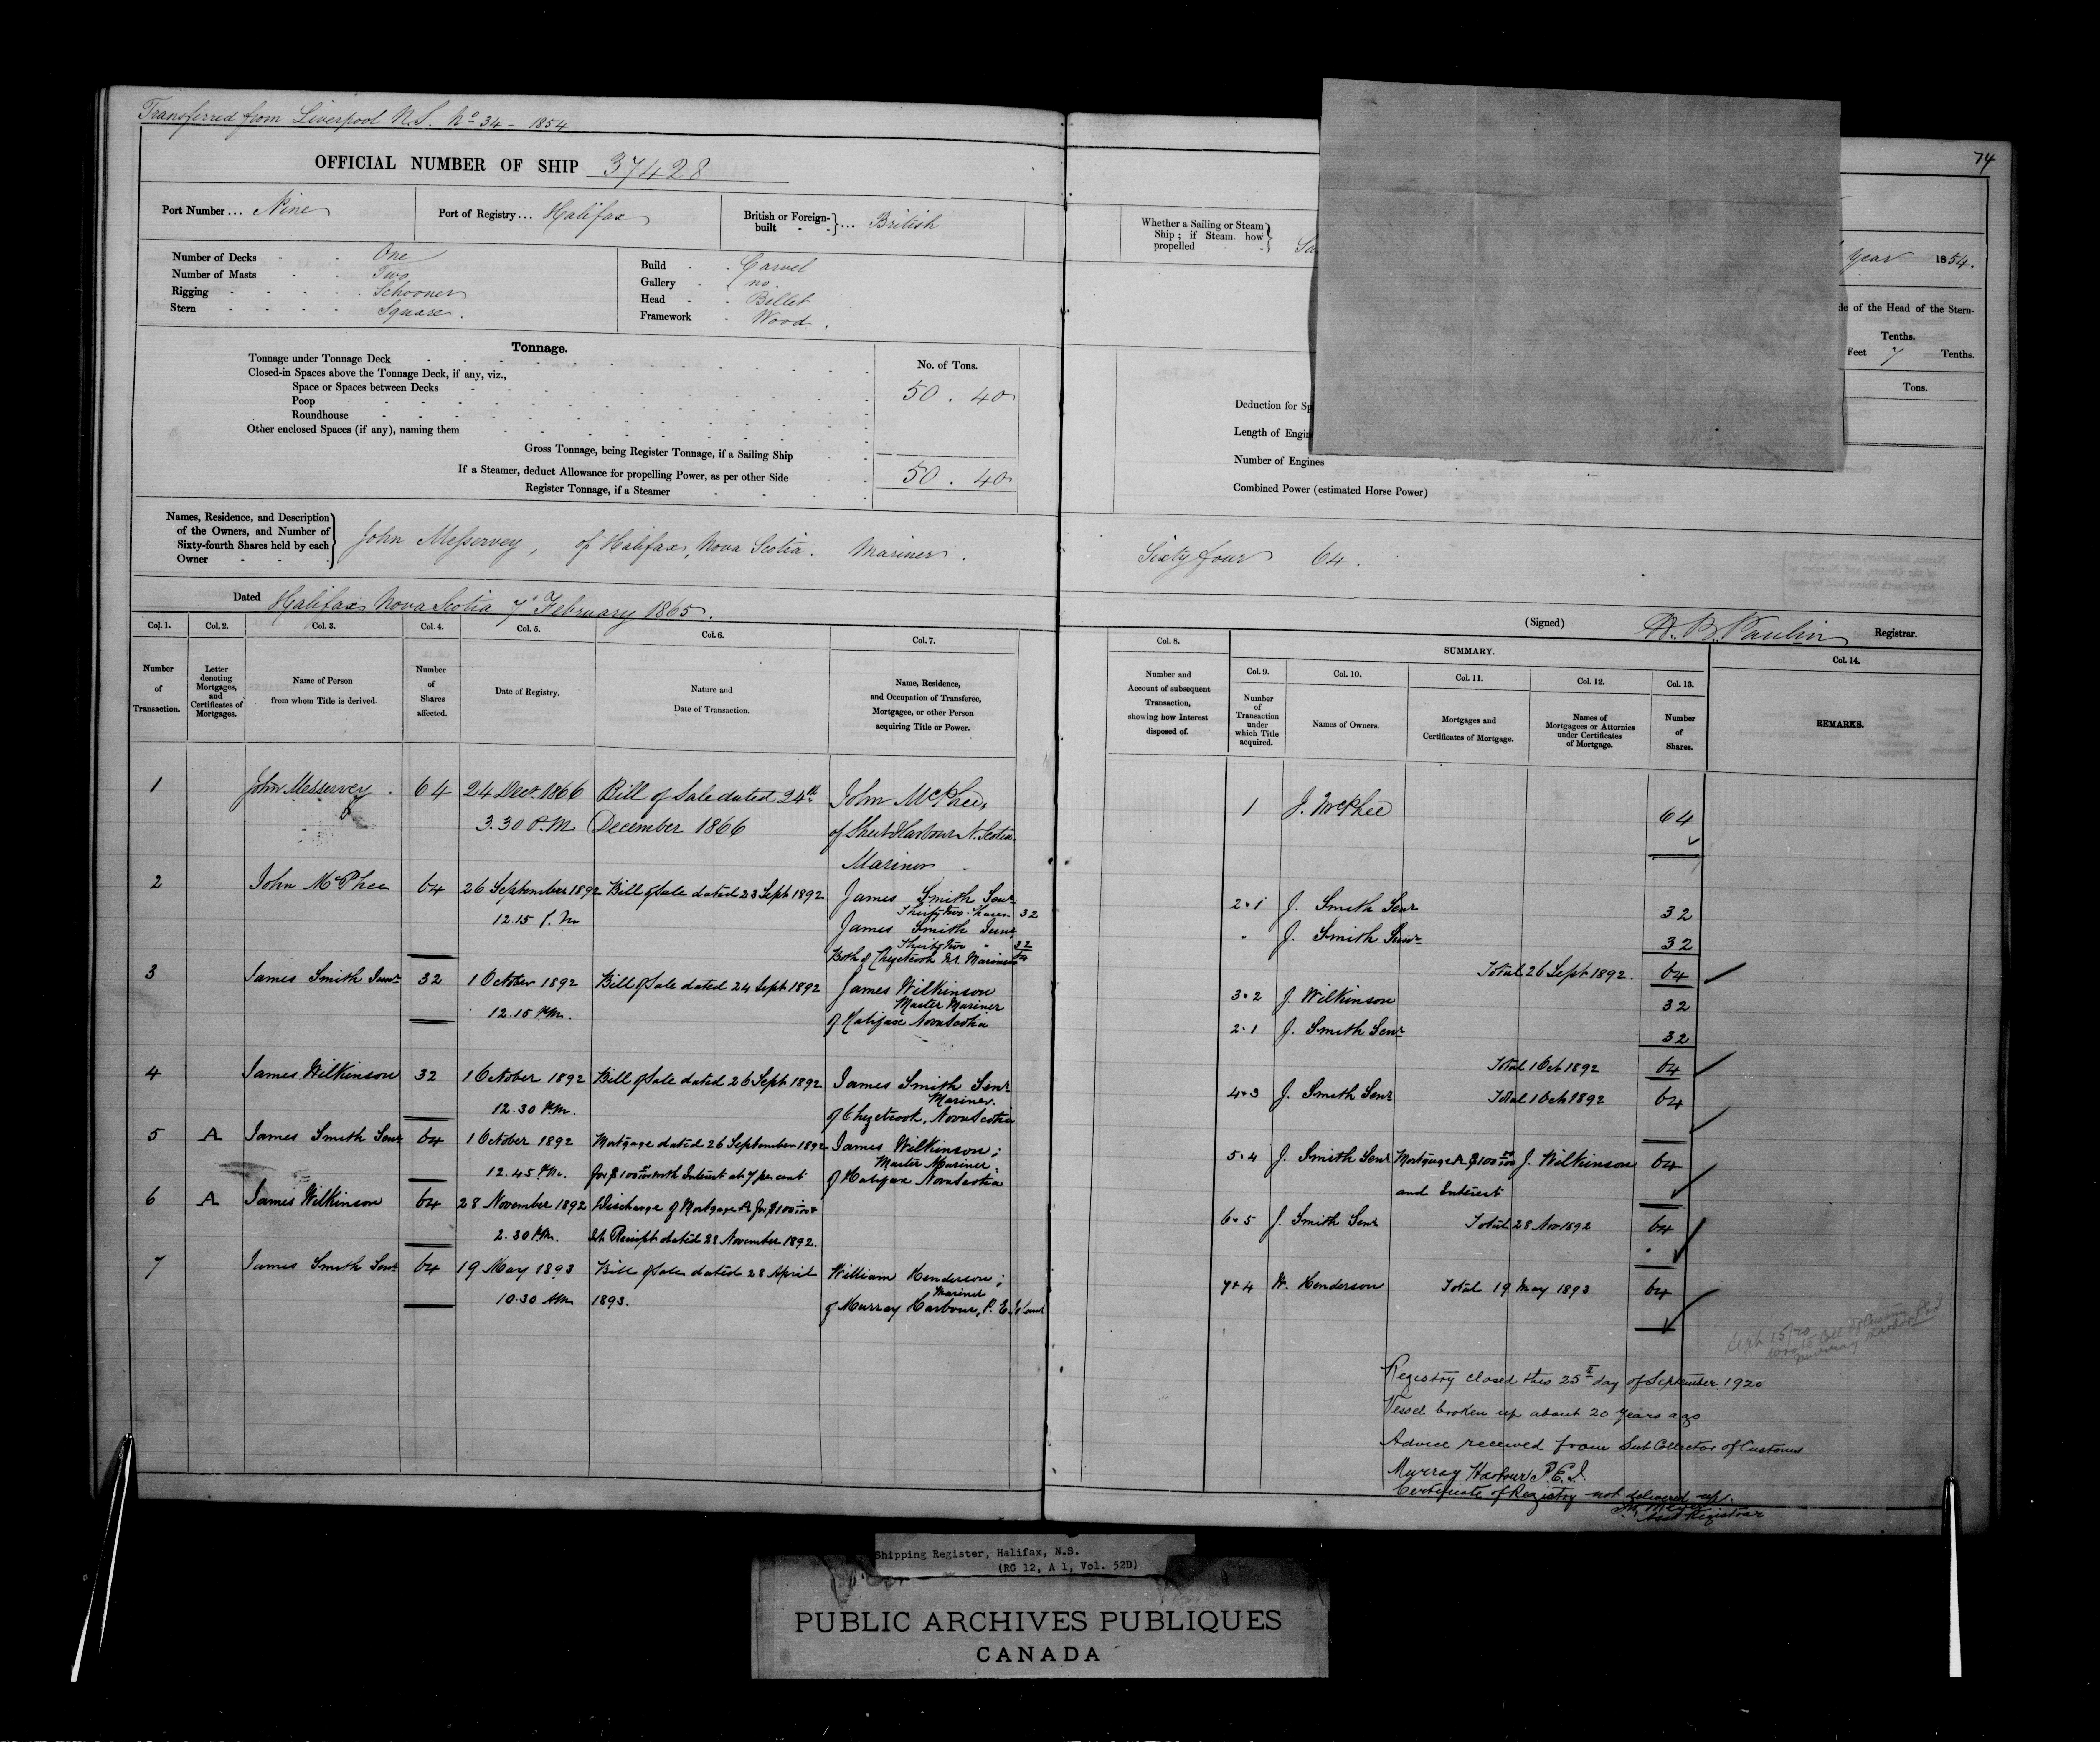 Transferred from Liverpool N.S. No 34 - 1854
74
OFFICIAL NUMBER OF SHIP 37428
Port Number... Nine
Port of Registry... Halifax
British or Foreign-built ... British
Whether a Sailing or Steam Ship; if Steam how propelled
year 1854.
Number of Decks - - One
Number of Masts - - Two
Rigging - - - - Schooner
Stern - - - - Square.
Build - - Carvel
Gallery - - no.
Head - - Billet
Framework - Wood.
de of the Head of the Stern-
Tenths.
Feet 7 Tenths.
Tonnage.
No. of Tons.
Tons.
Tonnage under Tonnage Deck
Closed-in Spaces above the Tonnage Deck, if any, viz.,
Space or Spaces between Decks
50. 40
Poop
Roundhouse
Other enclosed Spaces (if any), naming them
Gross Tonnage, being Register Tonnage, if a Sailing Ship
If a Steamer, deduct Allowance for propelling Power, as per other Side
50. 40
Register Tonnage, if a Steamer
Deduction for Sp
Length of Engin
Number of Engines
Combined Power (estimated Horse Power)
Names, Residence, and Description of the Owners, and Number of Sixty-fourth Shares held by each Owner
John Messervey, of Halifax, Nova Scotia. Mariner.
Sixty four 64.
Dated Halifax Nova Scotia 7 February 1865.
(Signed) H. B. Paulin Registrar.
Col. 1. Col. 2. Col. 3. Col. 4. Col. 5. Col. 6. Col. 7.
Number of Transaction.
Letter denoting Mortgages, and Certificates of Mortgages.
Name of Person from whom Title is derived
Number of Shares affected.
Date of Registry.
Nature and Date of Transaction.
Name, Residence, and Occupation of Transferee, Mortgagee, or other Person acquiring Title or Power.
Col. 8.
Number and Account of subsequent Transaction, showing how Interest disposed of.
SUMMARY.
Col. 9. Col. 10. Col. 11. Col. 12. Col. 13.
Number of Transaction under which Title acquired.
Names of Owners.
Mortgages and Certificates of Mortgage.
Names of Mortgagees or Attornies under Certificates of Mortgage.
Number of Shares.
Col. 14.
REMARKS.
1 John Messervey. 64 24 Decr. 1866 Bill of Sale dated 24th John McPhee,
3.30 P.M. December 1866 of Sheet Harbour N. Scotia
Mariner
2 John McPhee 64 26 September 1892 Bill of Sale dated 23 Sept 1892 James Smith Senr
12.15 P.M Thirty two Shares 32
James Smith Junr
Thirty two " 32
Both of Chezetcook N.S. Mariners 64
3 James Smith Junr 32 1 October 1892 Bill of Sale dated 24 Sept 1892 James Wilkinson
Master Mariner
12.15 P.M. of Halifax Nova Scotia
4 James Wilkinson 32 1 October 1892 Bill of Sale dated 26 Sept 1892 James Smith Senr
Mariner.
12.30 P.M. of Chezetcook, Nova Scotia
5 A James Smith Senr 64 1 October 1892 Mortgage dated 26 September 1892 James Wilkinson;
Master Mariner.
12.45 P.M. for $100 00/100 with Interest at 7 per cent of Halifax Nova Scotia
6 A James Wilkinson 64 28 November 1892 Discharge of Mortgage A for $100 00/100
2.30 P.M. Receipt dated 28 November 1892.
7 James Smith Senr 64 19 May 1893 Bill of Sale dated 28 April William Henderson;
Mariner
10.30 AM 1893. of Murray Harbour, P. E. Island
1 J. McPhee 64
2.1 J. Smith Senr 32
" J. Smith Junr 32
Total 26 Sept 1892. 64
3.2 J. Wilkinson 32
2.1 J. Smith Senr 32
Total 1 Oct 1892 64
4.3 J. Smith Senr Total 1 Oct 1892 64
5.4 J. Smith Senr Mortgage A $100 00/100 J. Wilkinson 64
and Interest
6.5 J. Smith Senr Total 28 Nov 1892 64
7.4 W. Henderson Total 19 May 1893 64
Sept 15/20
wrote Coll of Customs
Murray Harbor PEI
Registry closed this 25th day of September 1920
Vessel broken up about 20 years ago
Advice received from Sub Collector of Customs
Murray Harbour P.E.I.
Certificate of Registry not delivered up.
Asst Registrar
Shipping Register, Halifax, N.S.
(RG 12, A 1, Vol. 52D)
PUBLIC ARCHIVES PUBLIQUES
CANADA